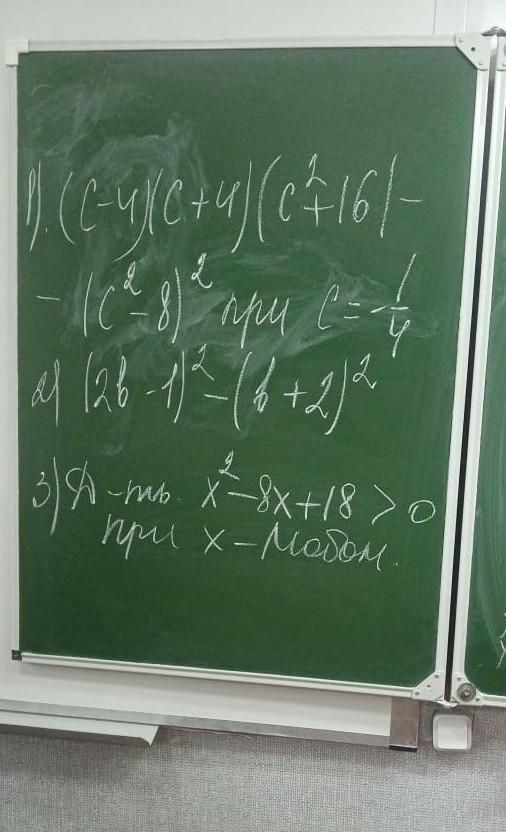 1). (c-4)(c+4)(c²+16)-
- (c²-8)² при c=-1/4
2) (2b-1)²-(b+2)²
3) Д-ть. x²-8x+18>0
при x-любом.